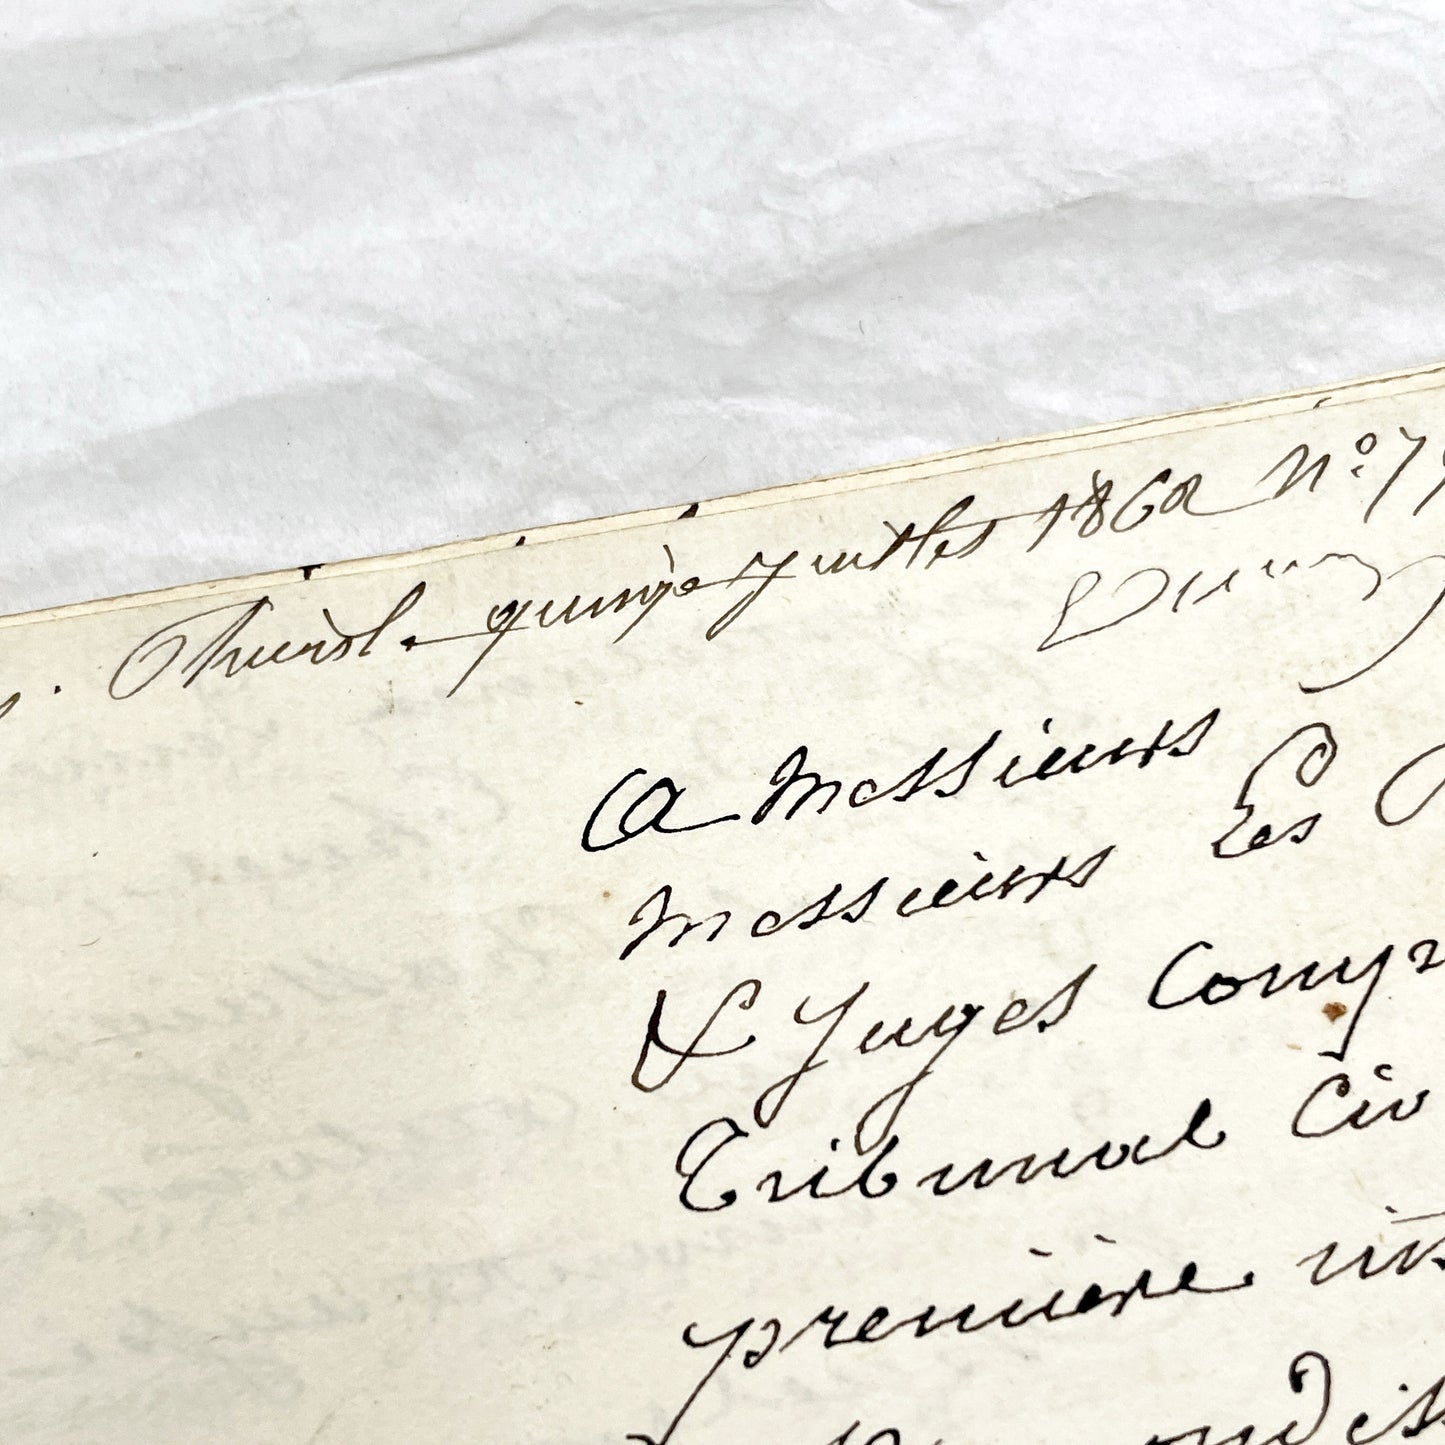 quinze juillet 1862 N° 7
A Messieurs
Messieurs Les
& Juges Comp
Tribunal Civ
première ins